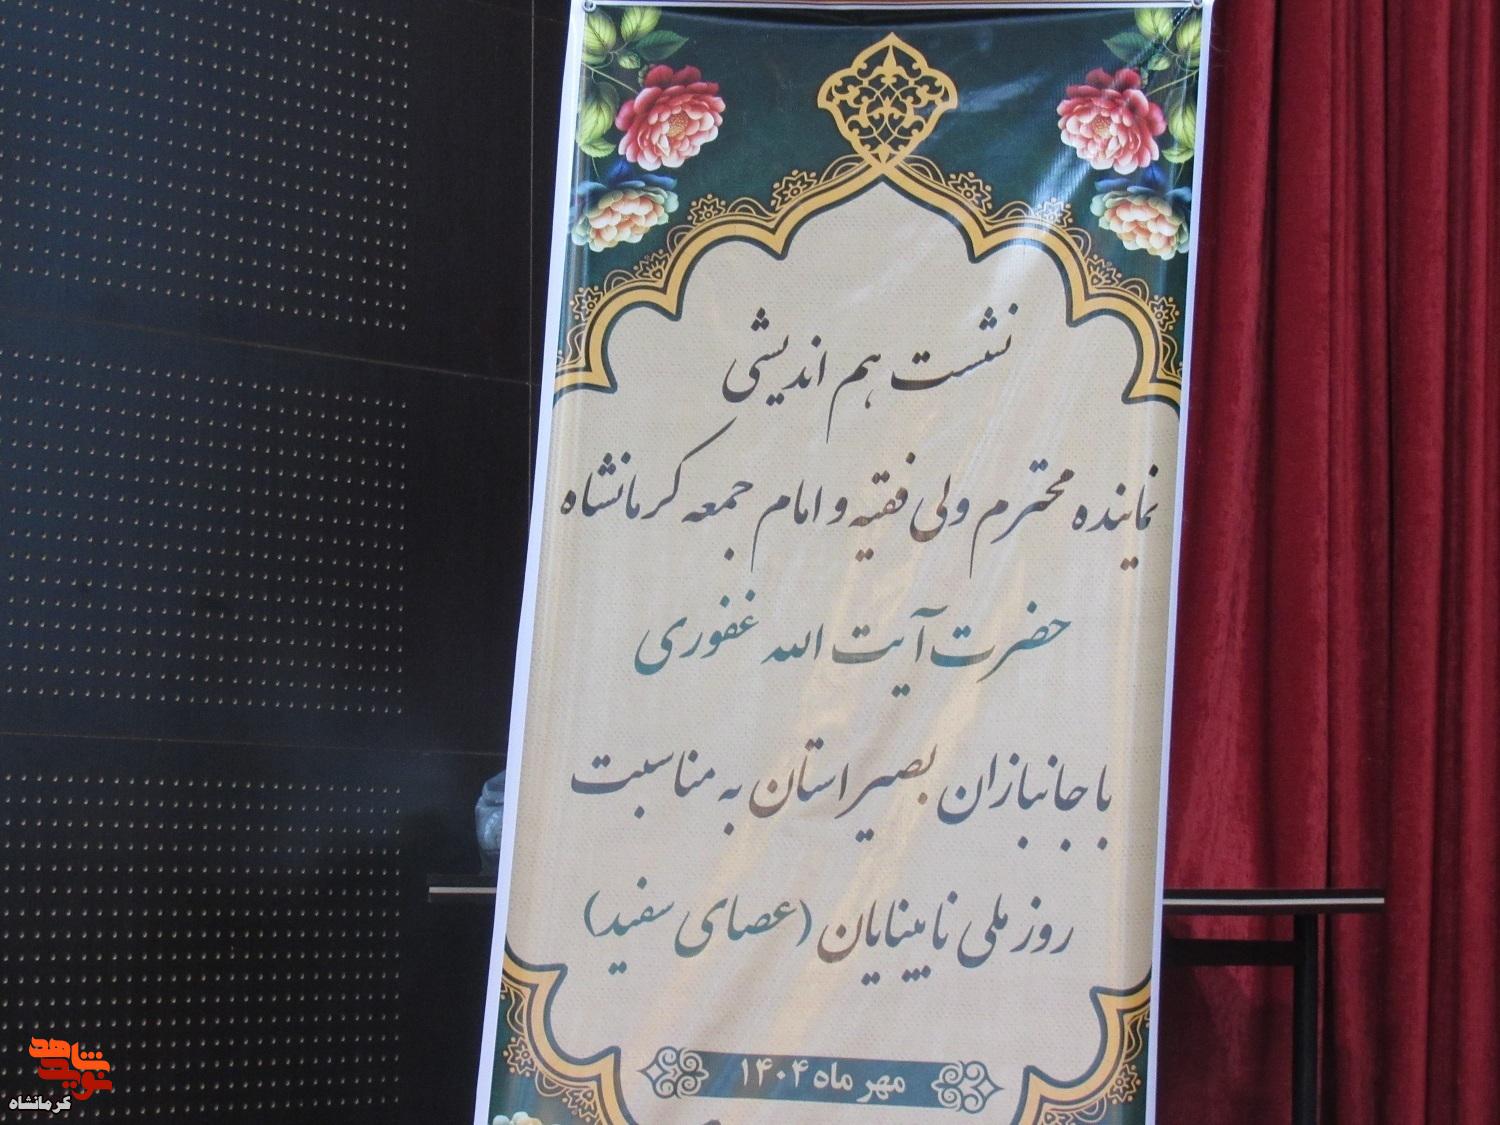 نشست هم اندیشی
نماینده محترم ولی فقیه و امام جمعه کرمانشاه
حضرت آیت الله غفوری
با جانبازان بصیر استان به مناسبت
روز ملی نابینایان (عصای سفید)
مهر ماه ۱۴۰۴
نوید شاهد
کرمانشاه